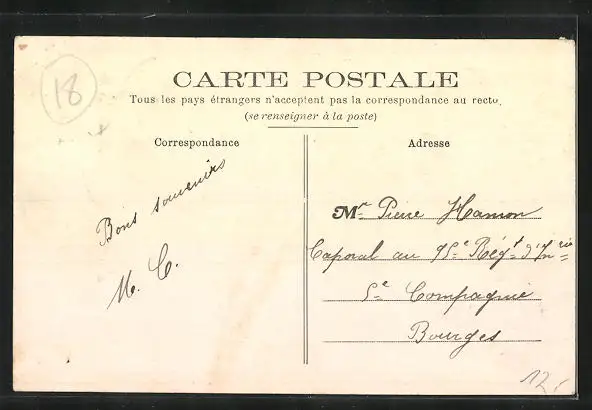 18
CARTE POSTALE
Tous les pays étrangers n'acceptent pas la correspondance au recto.
(se renseigner à la poste)
Correspondance
Adresse
Bons souvenirs
M. C.
Mr Pierre Hamon
Caporal au 95e Régt d'Inrie
5e Compagnie
Bourges
12,